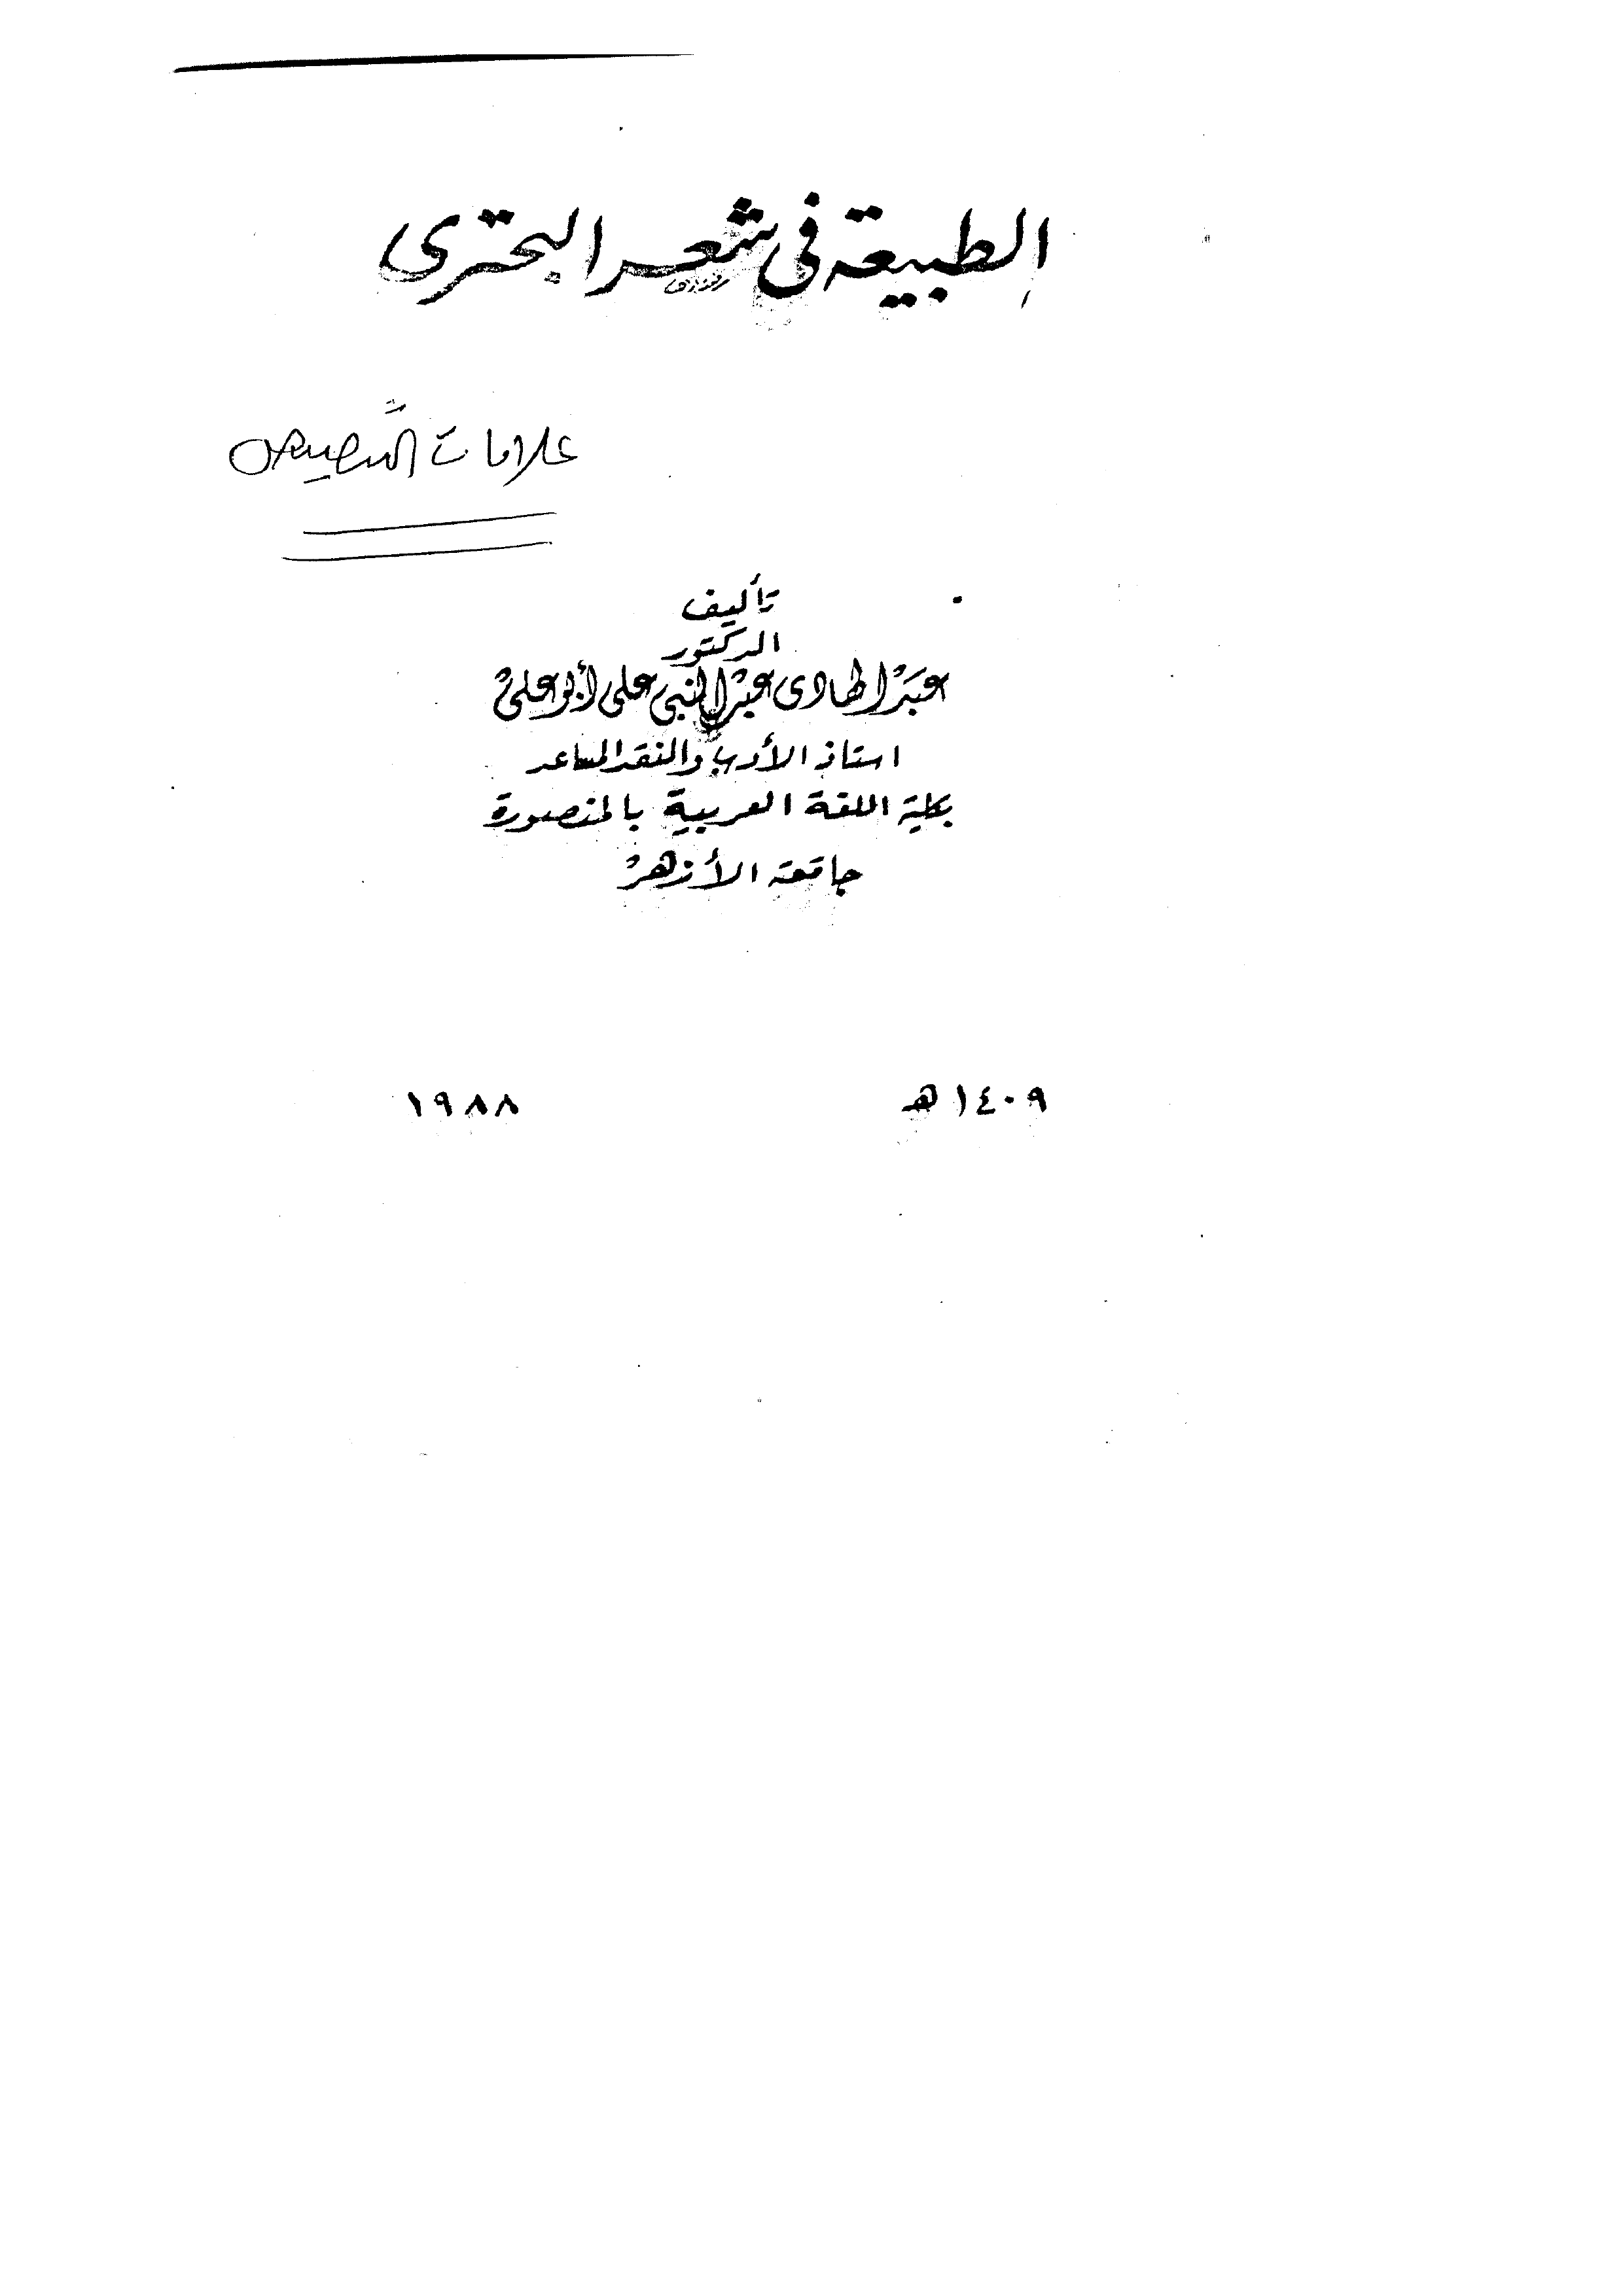 الطبيعة فى شعر البحترى
علامات
تأليف
الدكتور
عبد الهادى عبد النبى على أبو على
استاذ الأدب والنقد المساعد
بكلية اللغة العربية بالمنصورة
جامعة الأزهر
١٤٠٩ هـ ١٩٨٨